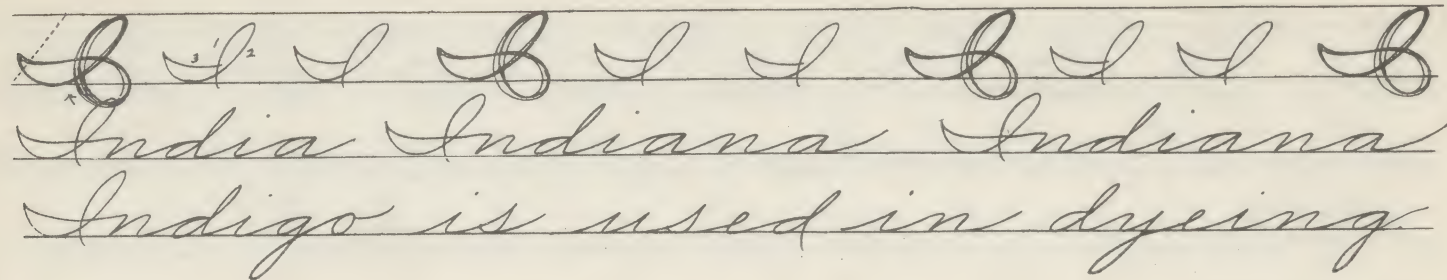 I I I I I I I I I I
India Indiana Indiana
Indigo is used in dyeing.